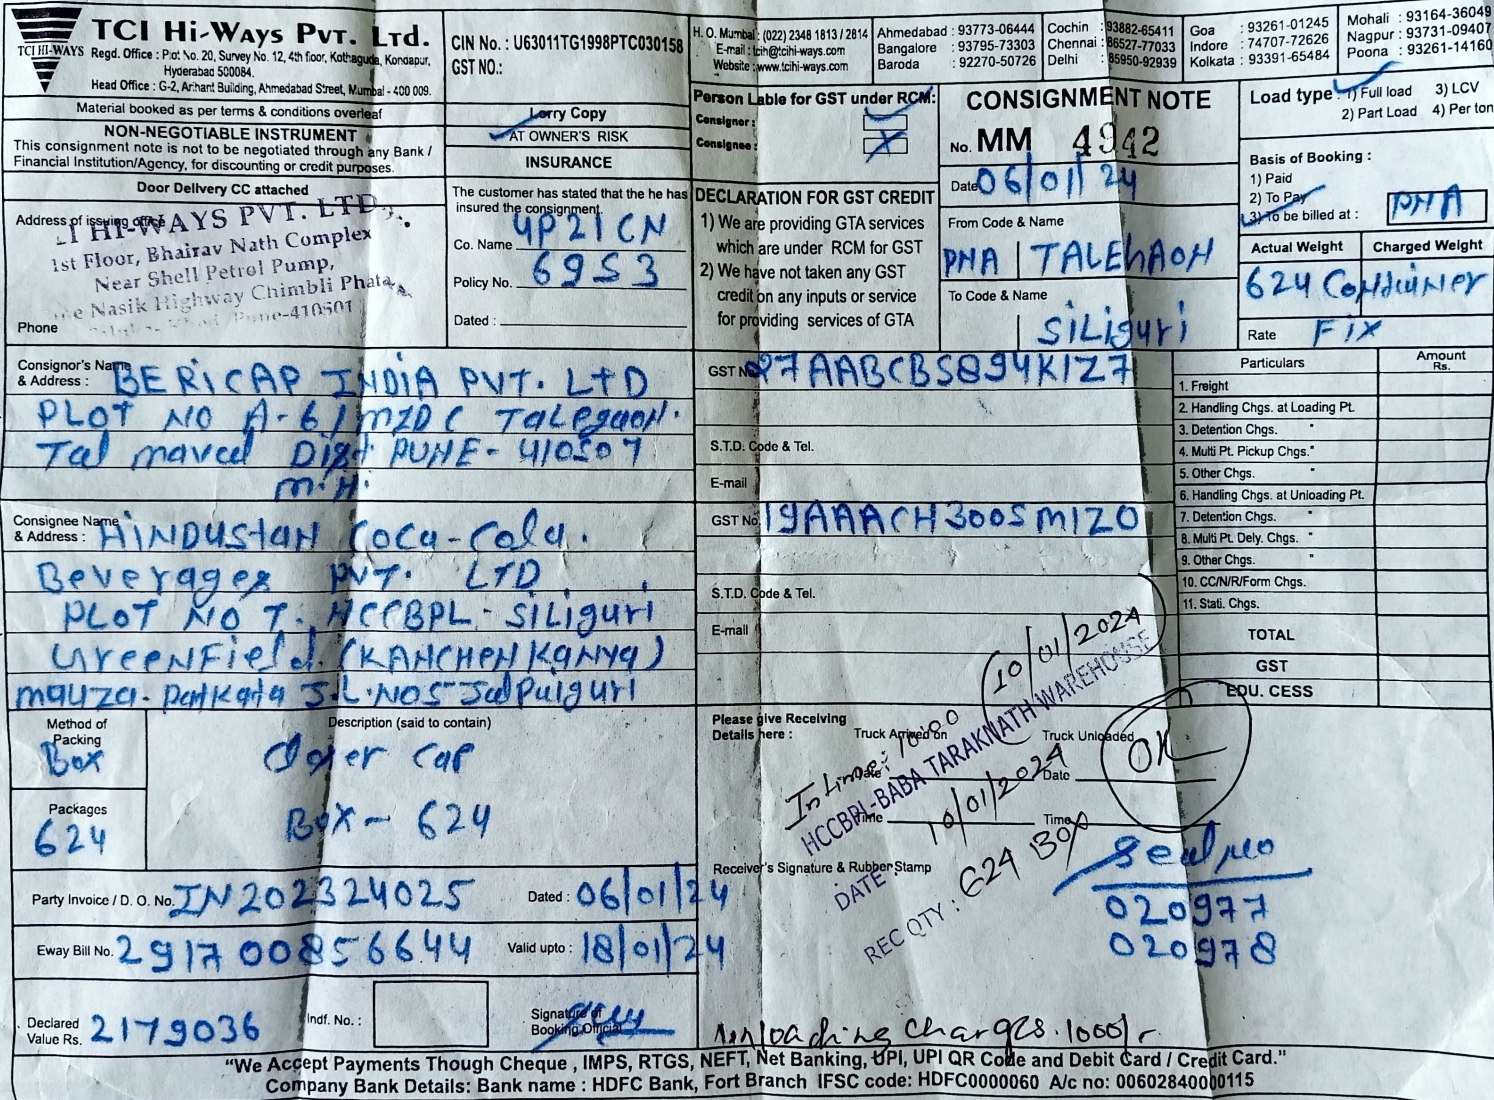 TCI Hi-Ways Pvt. Ltd.
TCI HI-WAYS
Regd. Office : Plot No. 20, Survey No. 12, 4th floor, Kothaguda, Kondapur,
Hyderabad 500084.
Head Office : G-2, Arihant Building, Ahmedabad Street, Mumbai - 400 009.
CIN No. : U63011TG1998PTC030158
GST NO.:
H. O. Mumbai : (022) 2348 1813 / 2814
E-mail : tcih@tcihi-ways.com
Website : www.tcihi-ways.com
Ahmedabad : 93773-06444
Bangalore : 93795-73303
Baroda : 92270-50726
Cochin : 93882-65411
Chennai : 86527-77033
Delhi : 85950-92939
Goa : 93261-01245
Indore : 74707-72626
Kolkata : 93391-65484
Mohali : 93164-36049
Nagpur : 93731-09407
Poona : 93261-14160
Material booked as per terms & conditions overleaf
NON-NEGOTIABLE INSTRUMENT
This consignment note is not to be negotiated through any Bank /
Financial Institution/Agency, for discounting or credit purposes.
Lorry Copy
AT OWNER'S RISK
INSURANCE
Person Lable for GST under RCM:
Consignor :
Consignee : X
CONSIGNMENT NOTE
No. MM 4942
Date 06/01/24
Load type : 1) Full load 3) LCV
2) Part Load 4) Per ton
Basis of Booking :
1) Paid
2) To Pay
3) To be billed at : PNA
Door Delivery CC attached
Address of issuing office
I HI-WAYS PVT. LTD.
1st Floor, Bhairav Nath Complex
Near Shell Petrol Pump,
Nasik Highway Chimbli Phata
Pune-410501
Phone
The customer has stated that the he has
insured the consignment.
Co. Name UP21CN
Policy No. 6953
Dated :
DECLARATION FOR GST CREDIT
1) We are providing GTA services
which are under RCM for GST
2) We have not taken any GST
credit on any inputs or service
for providing services of GTA
From Code & Name
PNA | TALEGAON
To Code & Name
SiLiguri
Actual Weight Charged Weight
624 Container
Rate Fix
Consignor's Name
& Address : BERICAP INDIA PVT. LTD
PLOT NO A-6/ MIDC TALEgaON.
Tal maval Dist PUNE- 410507
M.H.
GST No. 27AABCB5894K1Z7
S.T.D. Code & Tel.
E-mail
Consignee Name
& Address : HiNDUStAN Coca-Cola.
Beverages PVT. LTD
PLOT NO 7. HCCBPL - SiLiguri
GreeNField. (KANCHENKANYA)
mauza- Patkata J.L.NO5 Jalpaiguri
GST No. 19AAACH3005M1ZO
S.T.D. Code & Tel.
E-mail
Particulars Amount Rs.
1. Freight
2. Handling Chgs. at Loading Pt.
3. Detention Chgs. "
4. Multi Pt. Pickup Chgs."
5. Other Chgs. "
6. Handling Chgs. at Unloading Pt.
7. Detention Chgs. "
8. Multi Pt. Dely. Chgs. "
9. Other Chgs. "
10. CC/N/R/Form Chgs.
11. Stati. Chgs.
TOTAL
GST
EDU. CESS
Method of
Packing
Box
Packages
624
Description (said to contain)
Closer Cap
Box - 624
Please give Receiving
Details here :
Truck Arrived on
Date
Time
Truck Unloaded
Date
Time
10/01/2024
In time: 10:00
10/01/2024
OK
HCCBPL-BABA TARAKNATH WAREHOUSE
DATE
REC QTY : 624 Box
Receiver's Signature & Rubber Stamp
Seal No
020977
020978
Party Invoice / D. O. No. IN202324025 Dated : 06/01/24
Eway Bill No. 291700856644 Valid upto : 18/01/24
Declared
Value Rs. 2179036
Indf. No. :
Signature of
Booking Official
Unloading charges. 1000/-
"We Accept Payments Though Cheque , IMPS, RTGS, NEFT, Net Banking, UPI, UPI QR Code and Debit Card / Credit Card."
Company Bank Details: Bank name : HDFC Bank, Fort Branch IFSC code: HDFC0000060 A/c no: 00602840000115